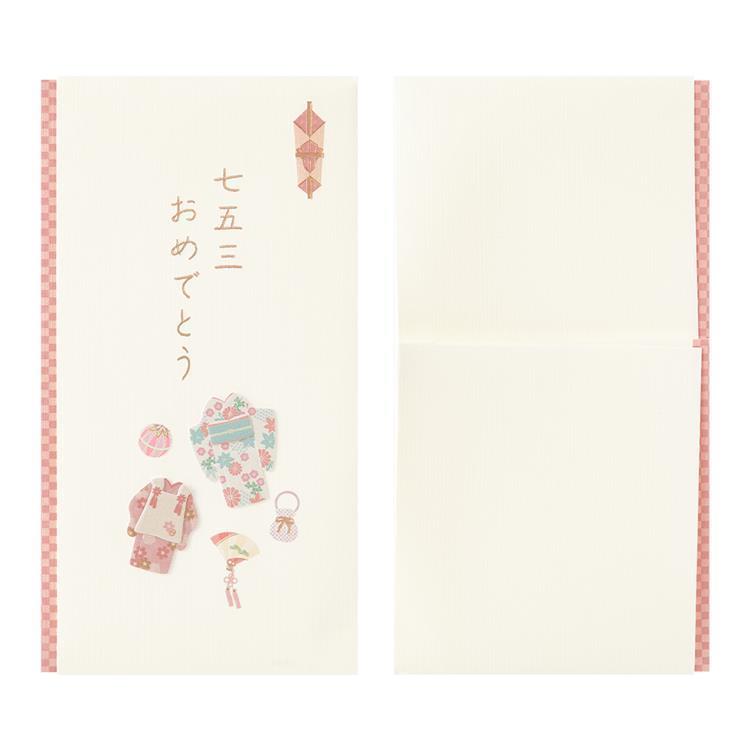 七五三
おめでとう